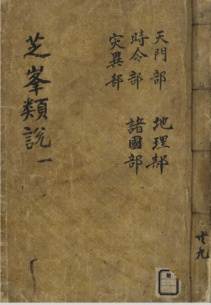 天門部 地理部
時令部 諸國部
災異部
芝峯類說 一
共九